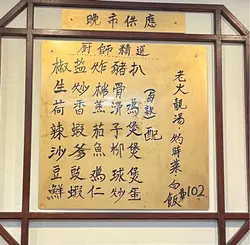 晚市供應
廚師精選
椒鹽炸豬扒
生炒排骨
荷香蒸滑雞煲
辣蝦茄子煲
沙爹魚柳煲
豉雞球煲
鮮蝦仁炒蛋
配
老火靚湯 灼時菜 白飯
$102